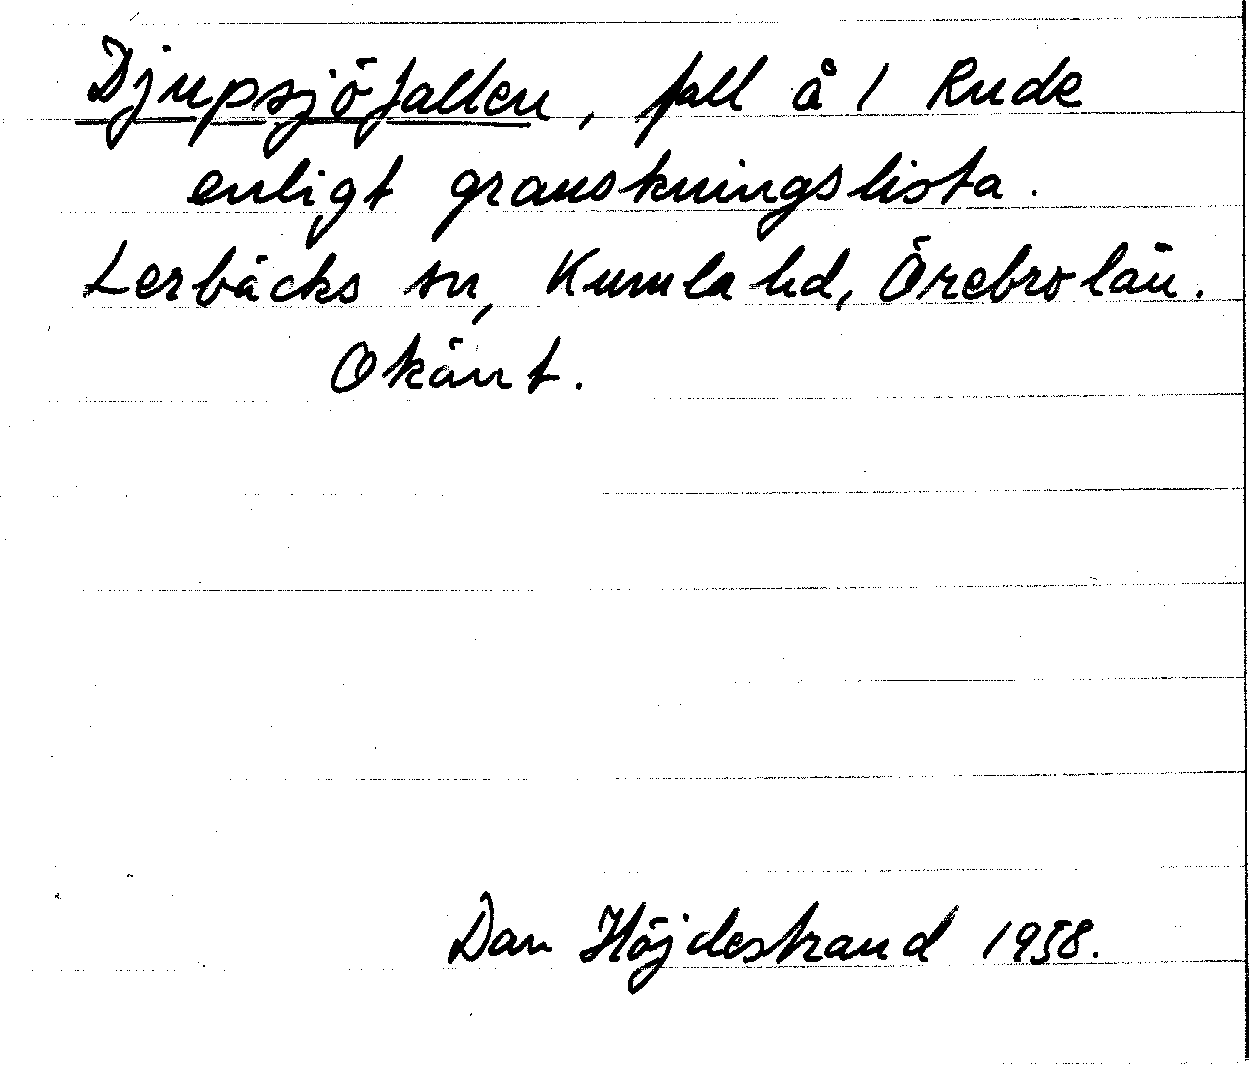 Djupsjöfallen, fall å 1 Rude
enligt granskningslista.
Lerbäcks sn, Kumla hd, Örebro län.
Okänt.
Dan Höjdestrand 1958.